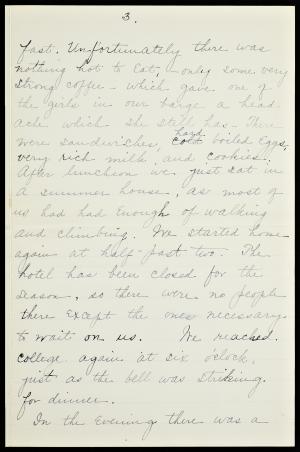 3.
fast. Unfortunately there was
nothing hot to eat, - only some very
strong coffee - which gave one of
the girls in our barge a head
ache which she still has. There
were sandwiches, cold hard boiled eggs,
very rich milk, and cookies.
After luncheon we just sat in
a summer house, as most of
us had had enough of walking
and climbing. We started home
again at half-past two. The
hotel has been closed for the
season, so there were no people
there except the ones necessary
to wait on us. We reached
college again at six o'clock,
just as the bell was striking
for dinner.
In the evening there was a